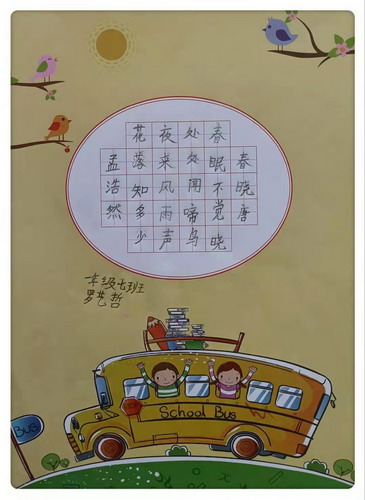 春晓唐
春眠不觉晓
处处闻啼鸟
夜来风雨声
花落知多少
孟浩然
一年级七班
罗艺哲
School Bus
Bus